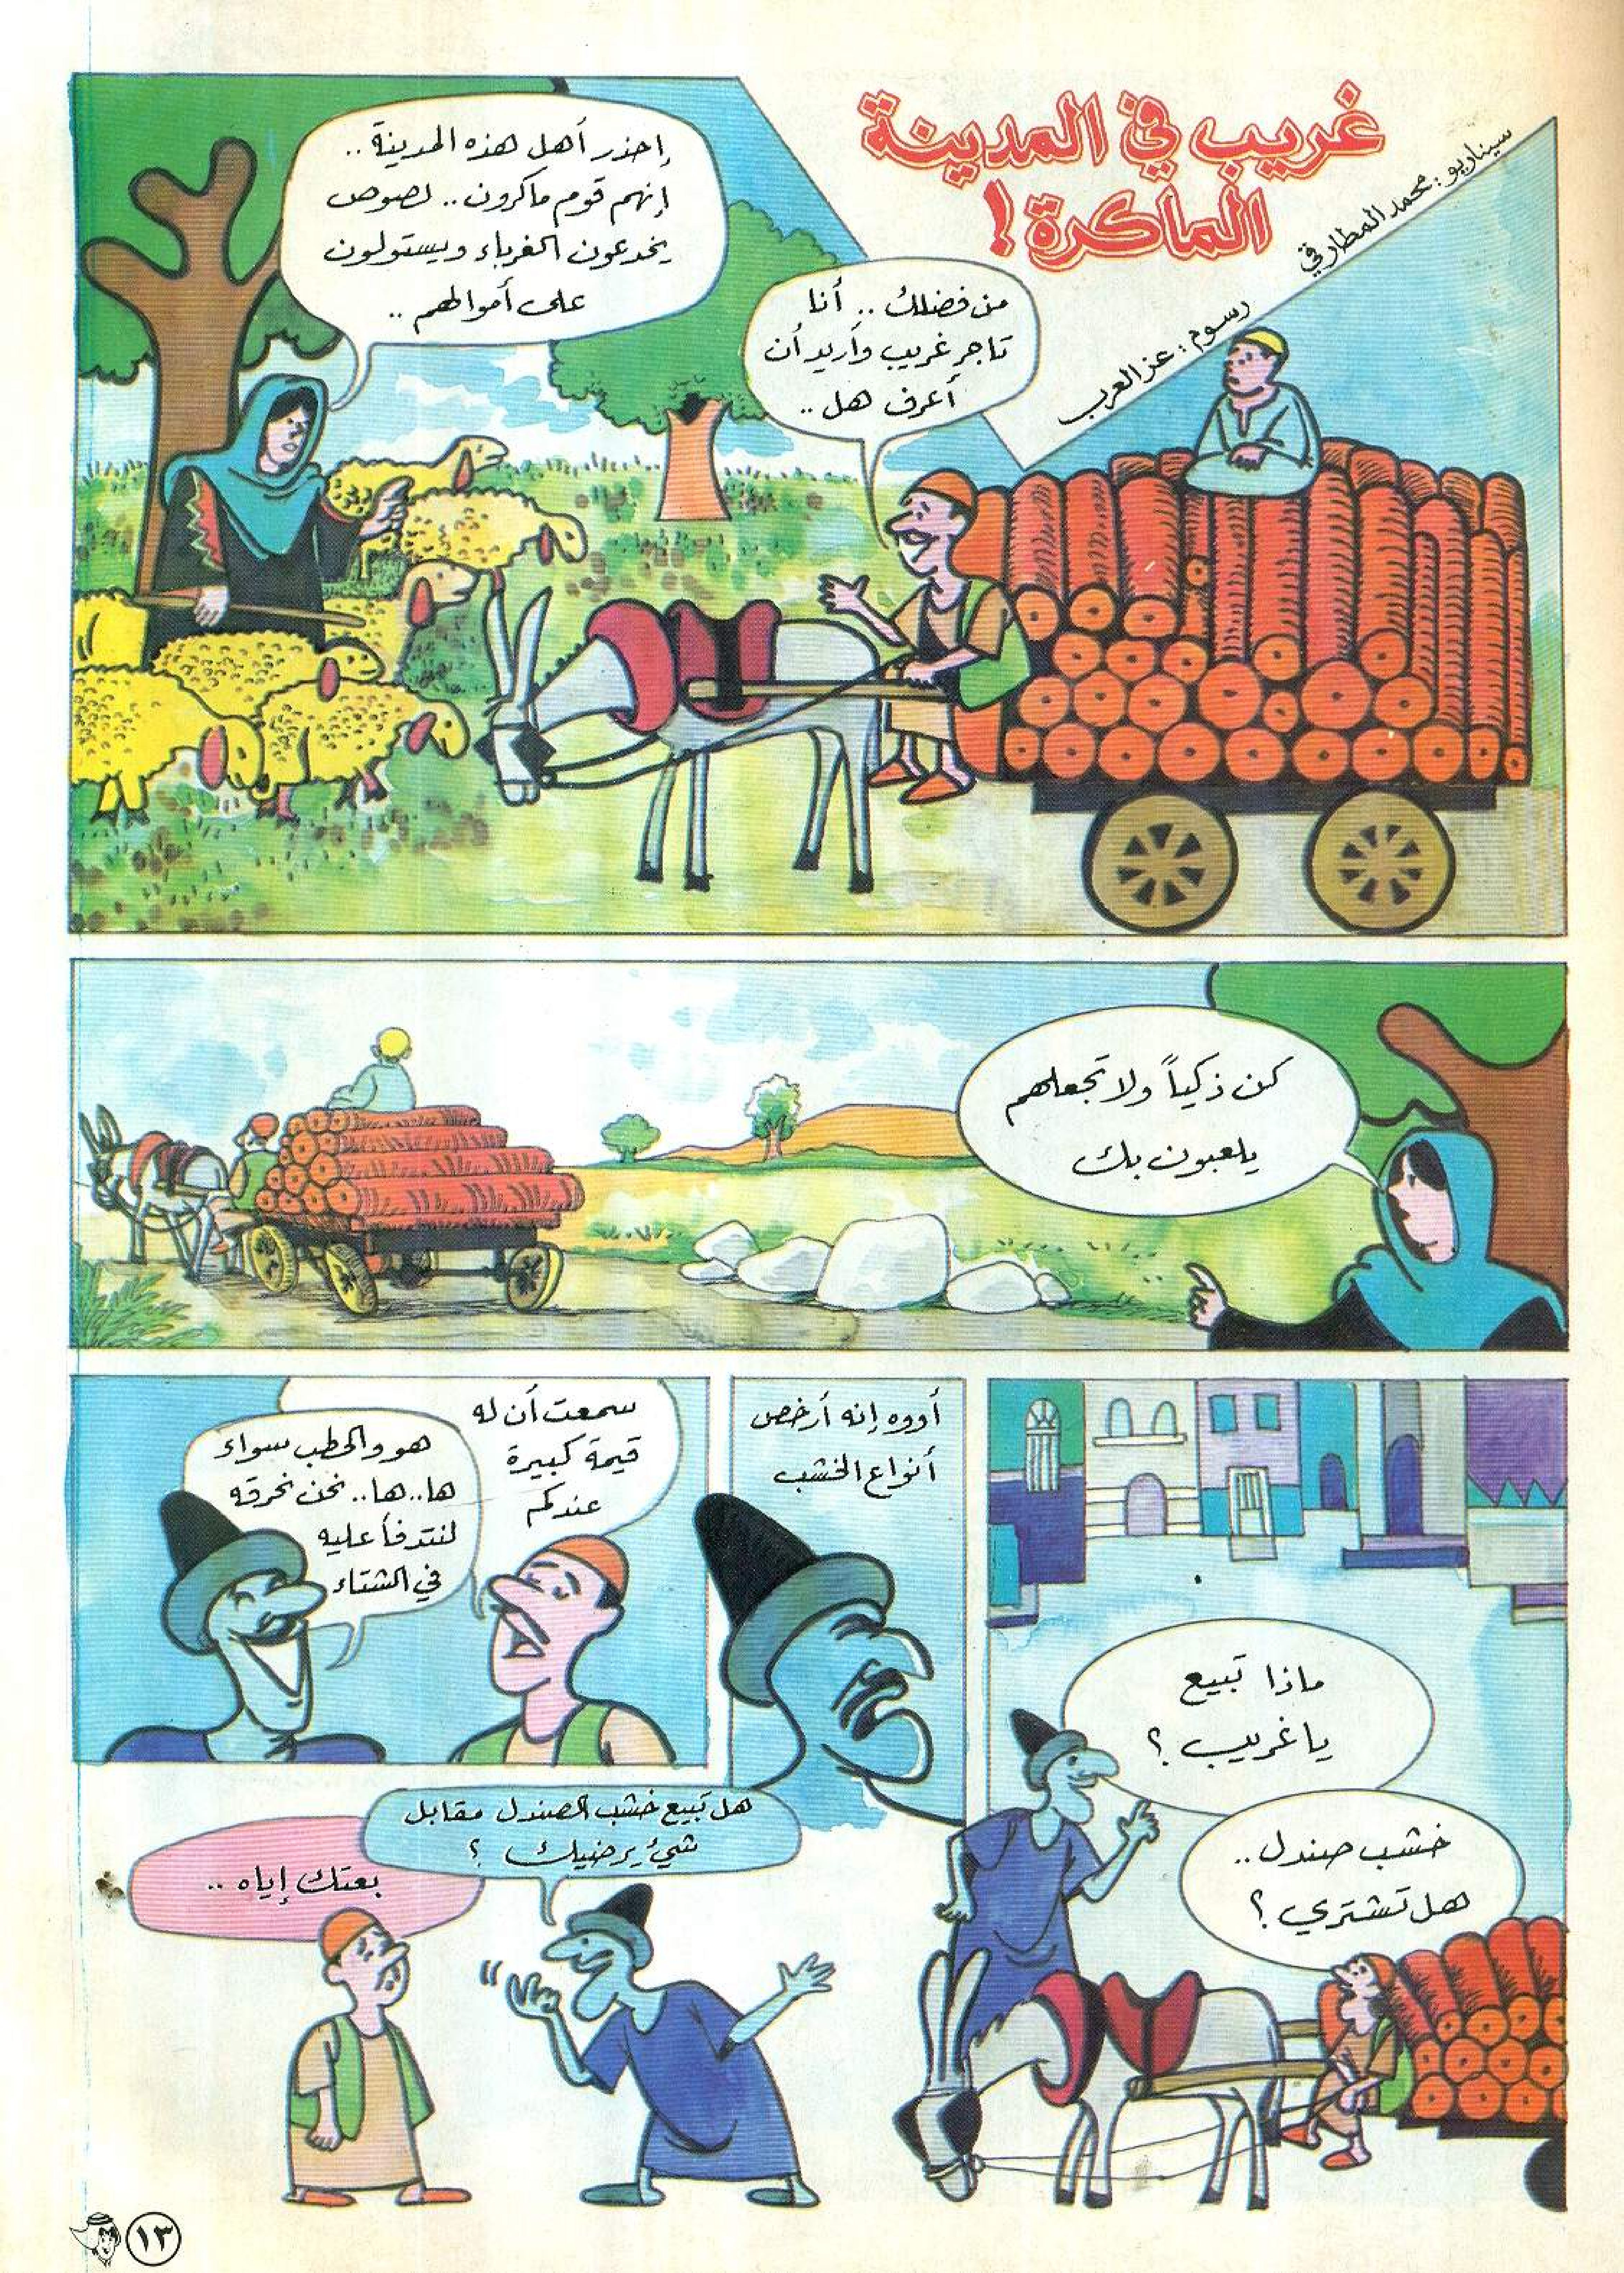 غريب في المدينة
الماكرة!
سيناريو: محمد المطارقي
رسوم: عز العرب
من فضلك .. أنا
تاجر غريب وأريد أن
أعرف هل ..
إحذر أهل هذه المدينة ..
إنهم قوم ماكرون .. لصوص
يخدعون الغرباء ويستولون
على أموالهم ..
كن ذكياً ولا تجعلهم
يلعبون بك
ماذا تبيع
يا غريب ؟
خشب صندل ..
هل تشتري ؟
أووه إنه أرخص
أنواع الخشب
سمعت أن له
قيمة كبيرة
عندكم
هو والحطب سواء
ها.. ها.. نحن نحرقه
لنتدفأ عليه
في الشتاء
هل تبيع خشب الصندل مقابل
شيء يرضيك ؟
بعتك إياه ..
١٣